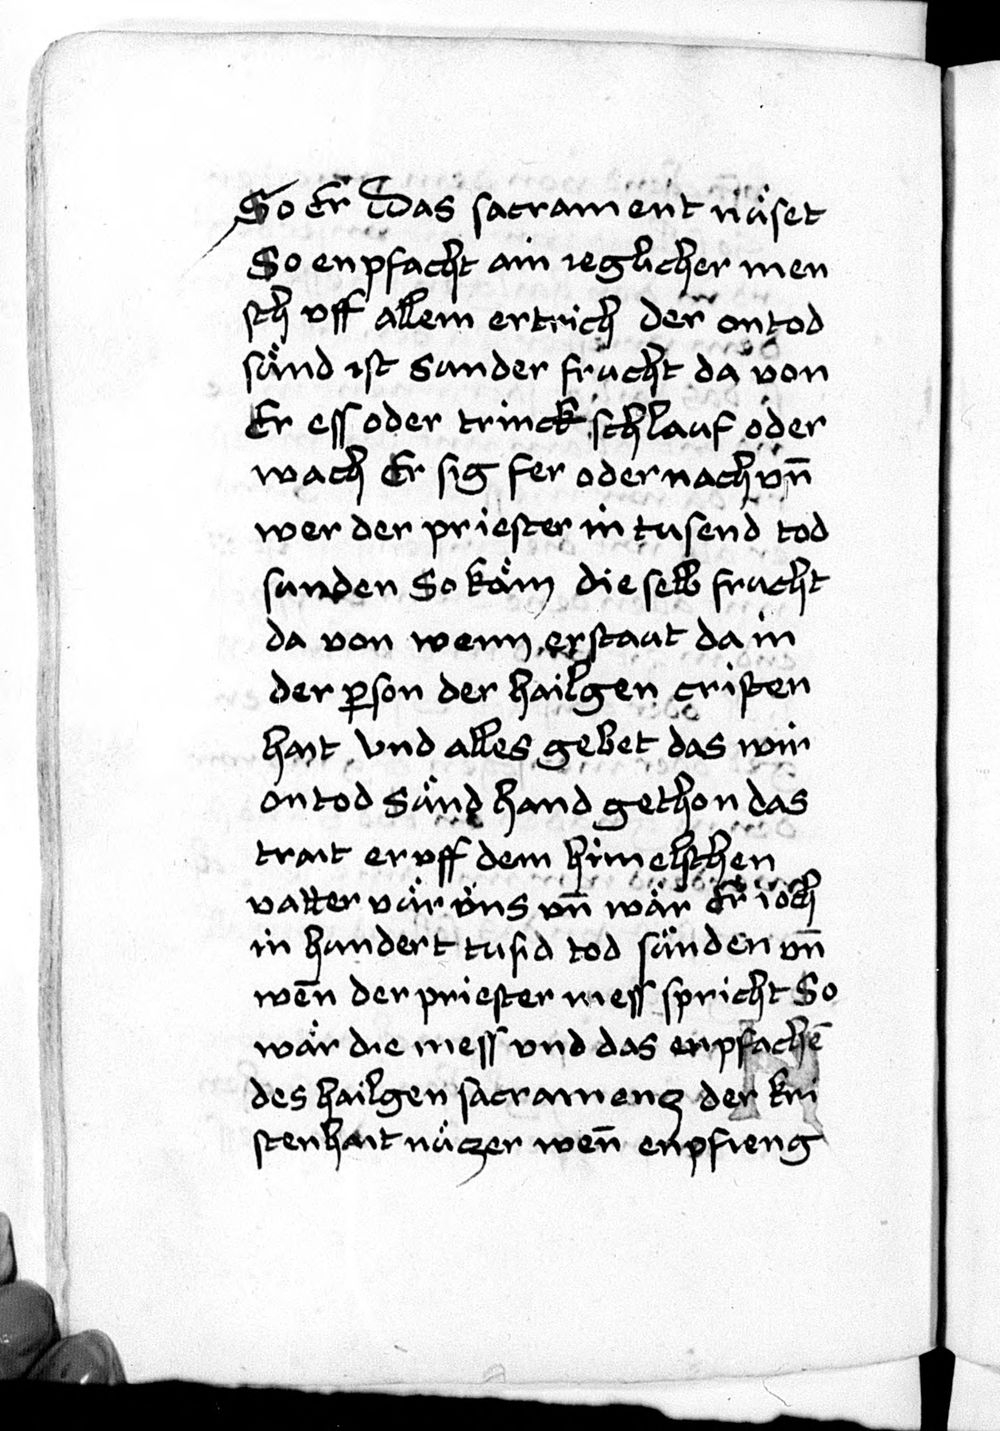 So Er Das sacrament nüset
So enpfacht ain ieglicher men
sch vff allem ertrich der on tod
sünd ist Sunder frucht da von
Er ess oder trinck schlauf oder
wach Er sig fer oder nach vn̄
wer der priester in tusend tod
sunden So käm die selb frucht
da von wenn er staut da in
der p̲son der hailgen cristen
hait Vnd alles gebet das wir
on tod Sünd hand gethon das
trait er vff dem himelschen
vatter vür üns vn̄ wär Er ioch
in hundert tusid tod sünden vn̄
wen̄ der priester mess spricht So
wär die mess vnd das enpfachē
des hailgen sacramencz der kri
stenhait nüczer wen̄ enpfieng